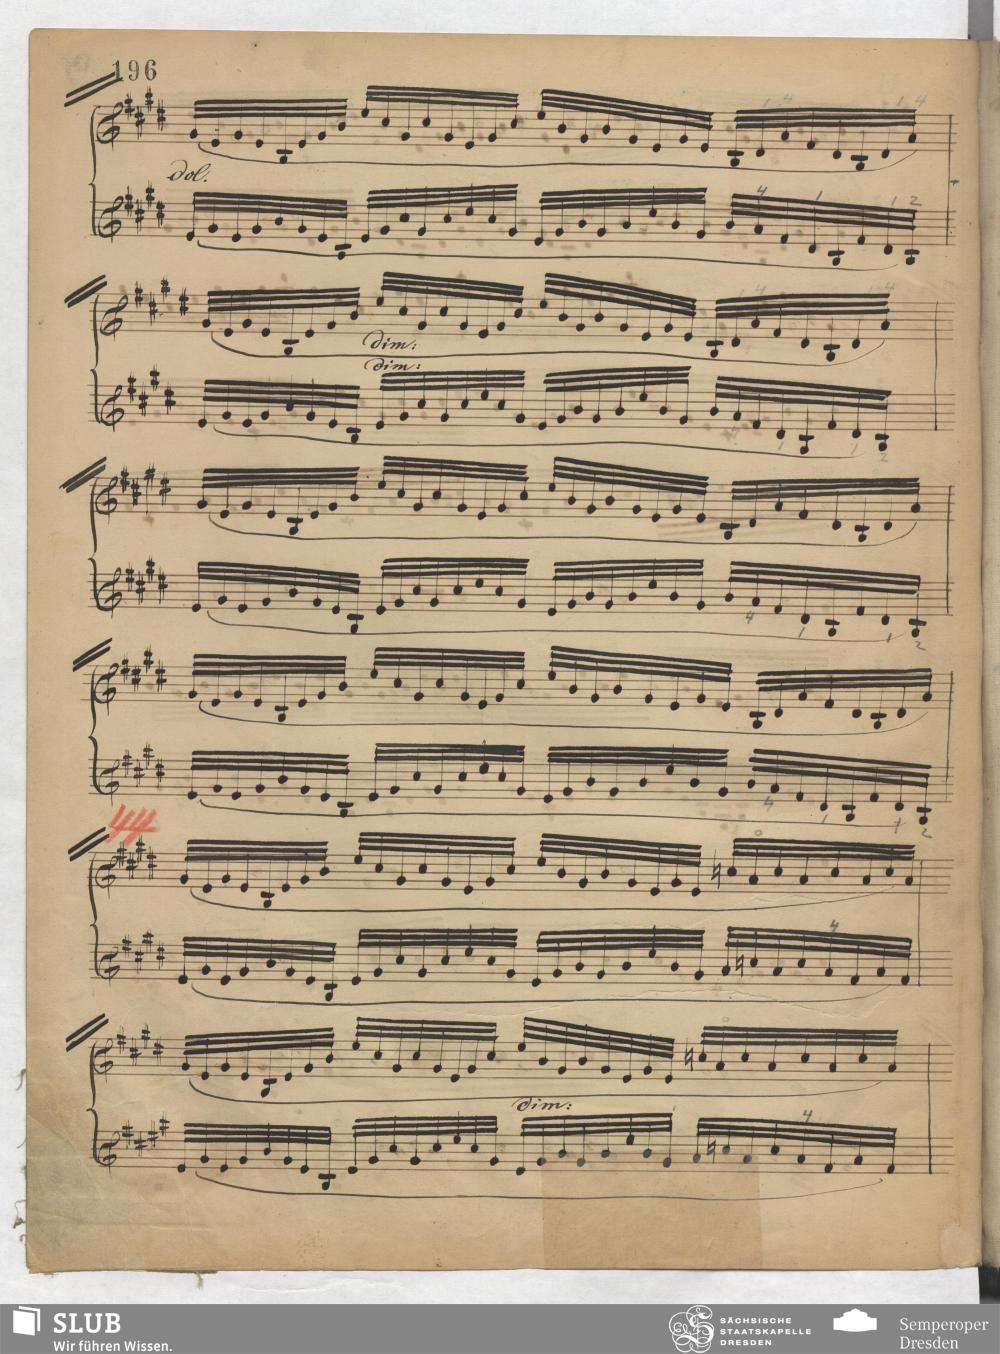 196
dol.
4 1 1 2
dim:
dim:
4 1 1 2
4 1 1 2
4 1 1 2
44
0
4
0
dim:
4
SLUB
Wir führen Wissen.
SÄCHSISCHE
STAATSKAPELLE
DRESDEN
Semperoper
Dresden